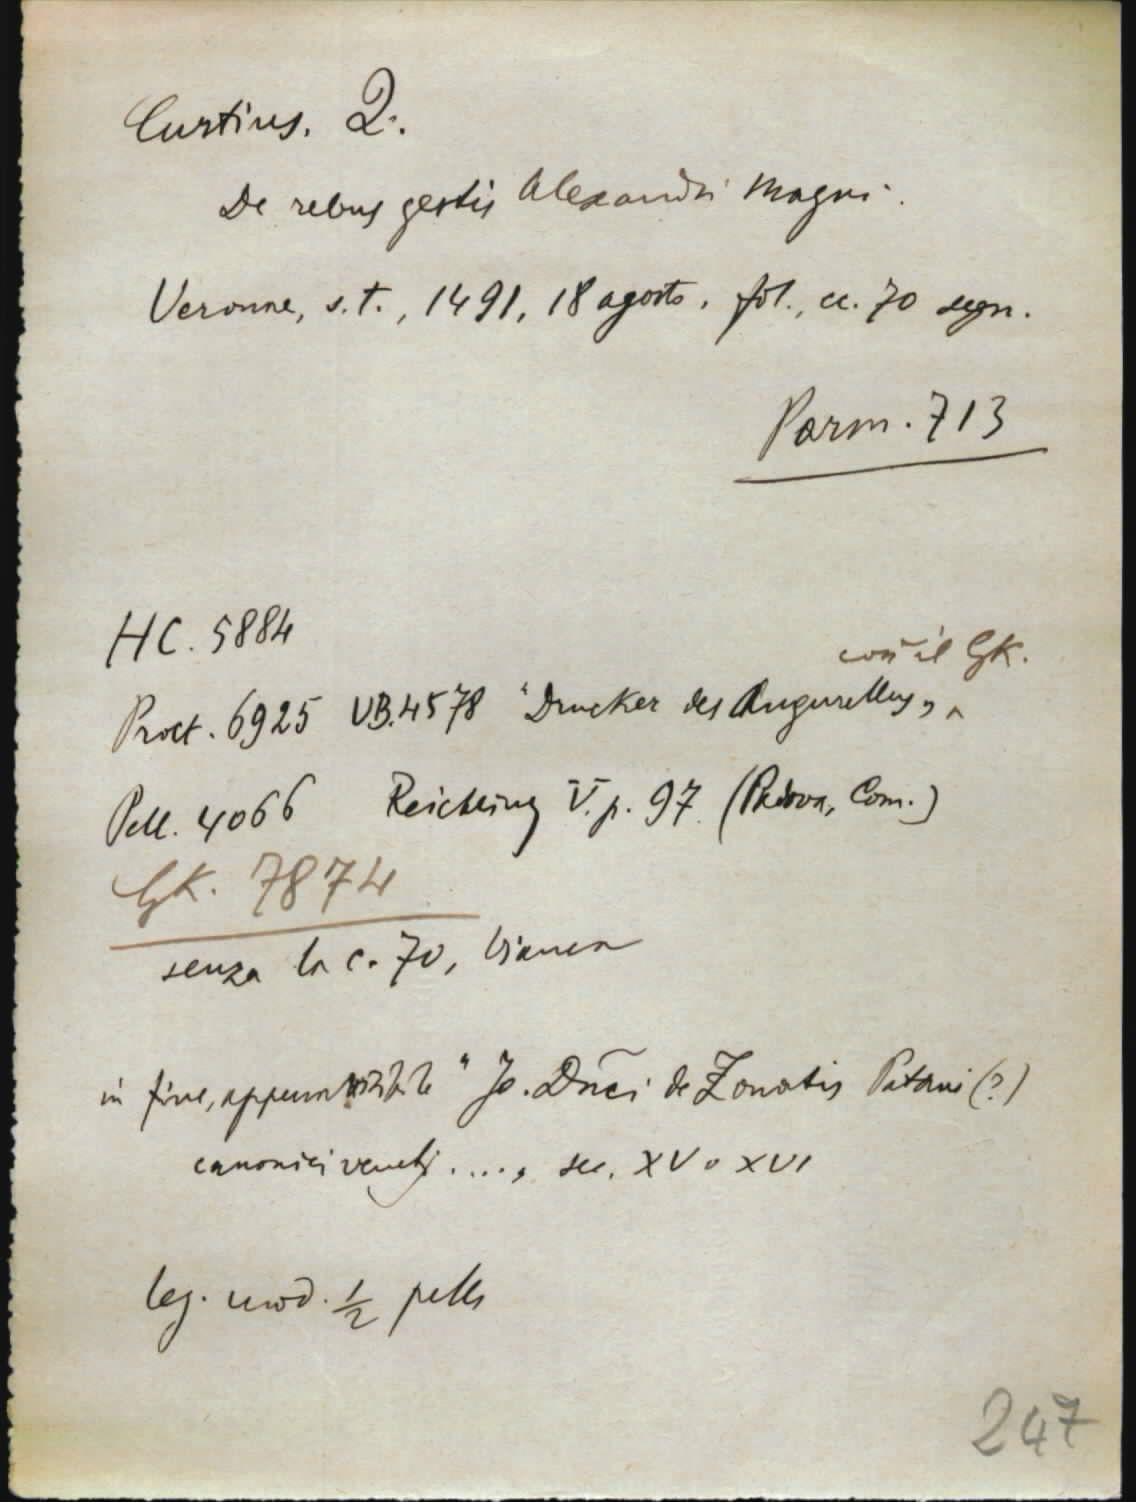 Curtius. Q.
De rebus gestis Alexandri Magni.
Veronae, s.t., 1491, 18 agosto. fol., cc. 70 segn.
Parm. 713
HC. 5884
così il GK.
Proct. 6925 VB. 4578 "Drucker des Augurellus" ^
Pell. 4066 Reichling V. p. 97. (Padova, Com.)
GK. 7874
senza la c. 70, bianca
in fine, " Jo. Dñci de Zonatis Patavi (?)
canonici veneti ...., sec. XV o XVI
leg. mod. 1/2 pelle
247